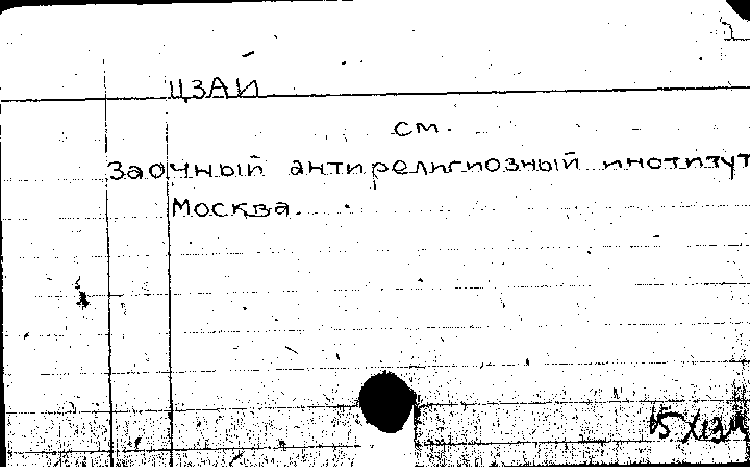 ЦЗАИ
см.
Заочный антирелигиозный институт
Москва.